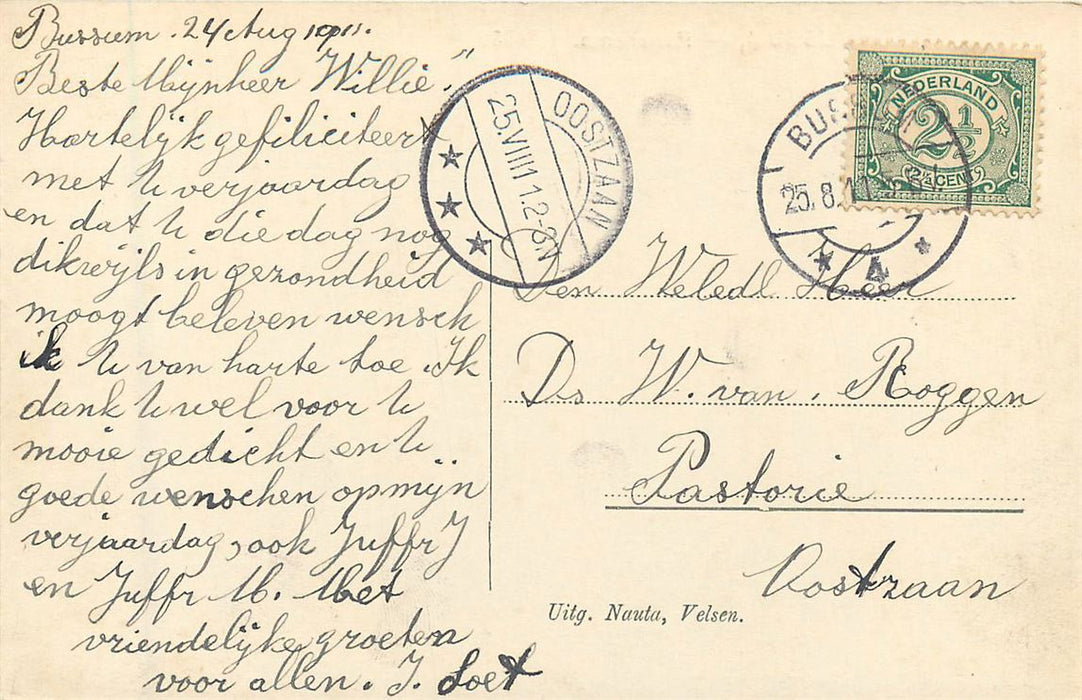 Bussum . 24 Aug 1911.
Beste Mijnheer Willie"
Hartelijk gefiliciteert
met U verjaardag
en dat U die dag nog
dikwijls in gezondheid
moogt beleven wensch
ik U van harte toe . Ik
dank U wel voor U
mooie gedicht en U
goede wenschen op mijn
verjaardag, ook Juffr J
en Juffr M. Met
vriendelijke groeten
voor allen. J. Soet
OOSTZAAN
25.VIII11.2-3N
BUSS
25.8.11
4
NEDERLAND
2½
2½ CENT
Den Weledl Heer
Ds W. van . Roggen
Pastorie
Oostzaan
Uitg. Nauta, Velsen.